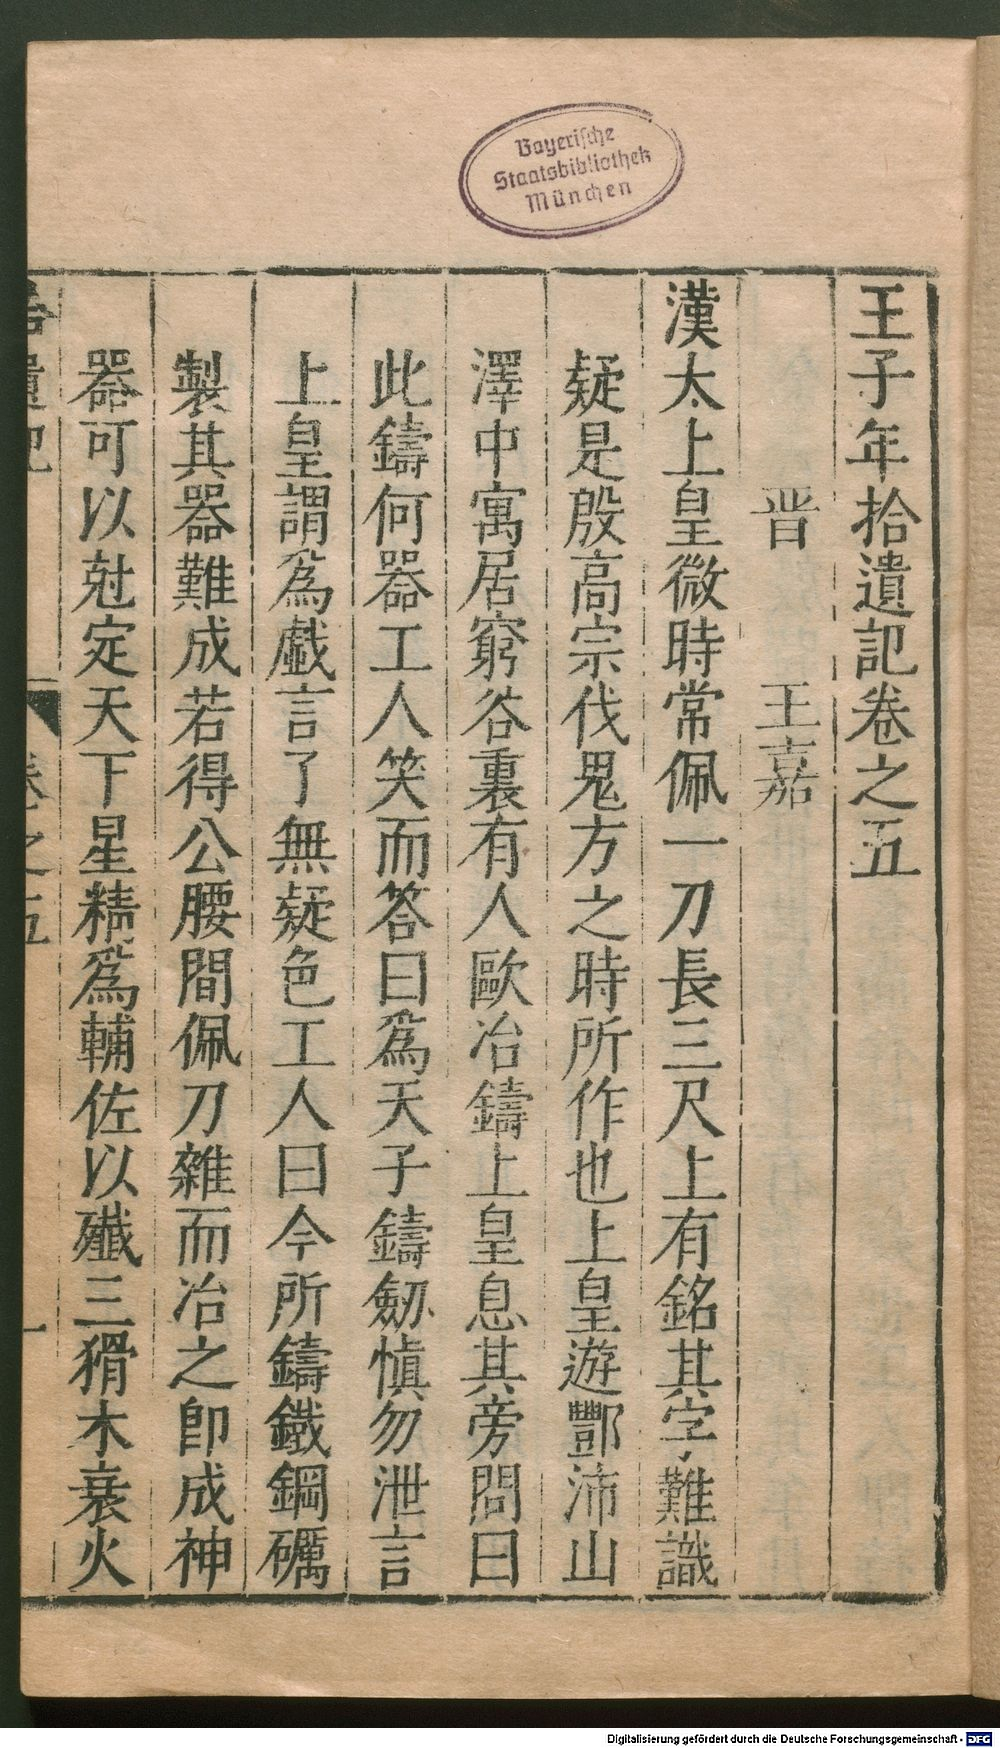 Bayerische
Staatsbibliothek
München
王子年拾遺記卷之五
晋 王嘉
漢太上皇微時常佩一刀長三尺上有銘其字難識
疑是殷高宗伐鬼方之時所作也上皇遊酆沛山
澤中寓居窮谷裏有人歐冶鑄上皇息其旁問曰
此鑄何器工人笑而答曰爲天子鑄劒慎勿泄言
上皇謂爲戯言了無疑色工人曰今所鑄鐵鋼礪
製其器難成若得公腰間佩刀雜而冶之卽成神
器可以尅定天下星精爲輔佐以殱三猾木衰火
拾遺記 卷之五 一
Digitalisierung gefördert durch die Deutsche Forschungsgemeinschaft - DFG